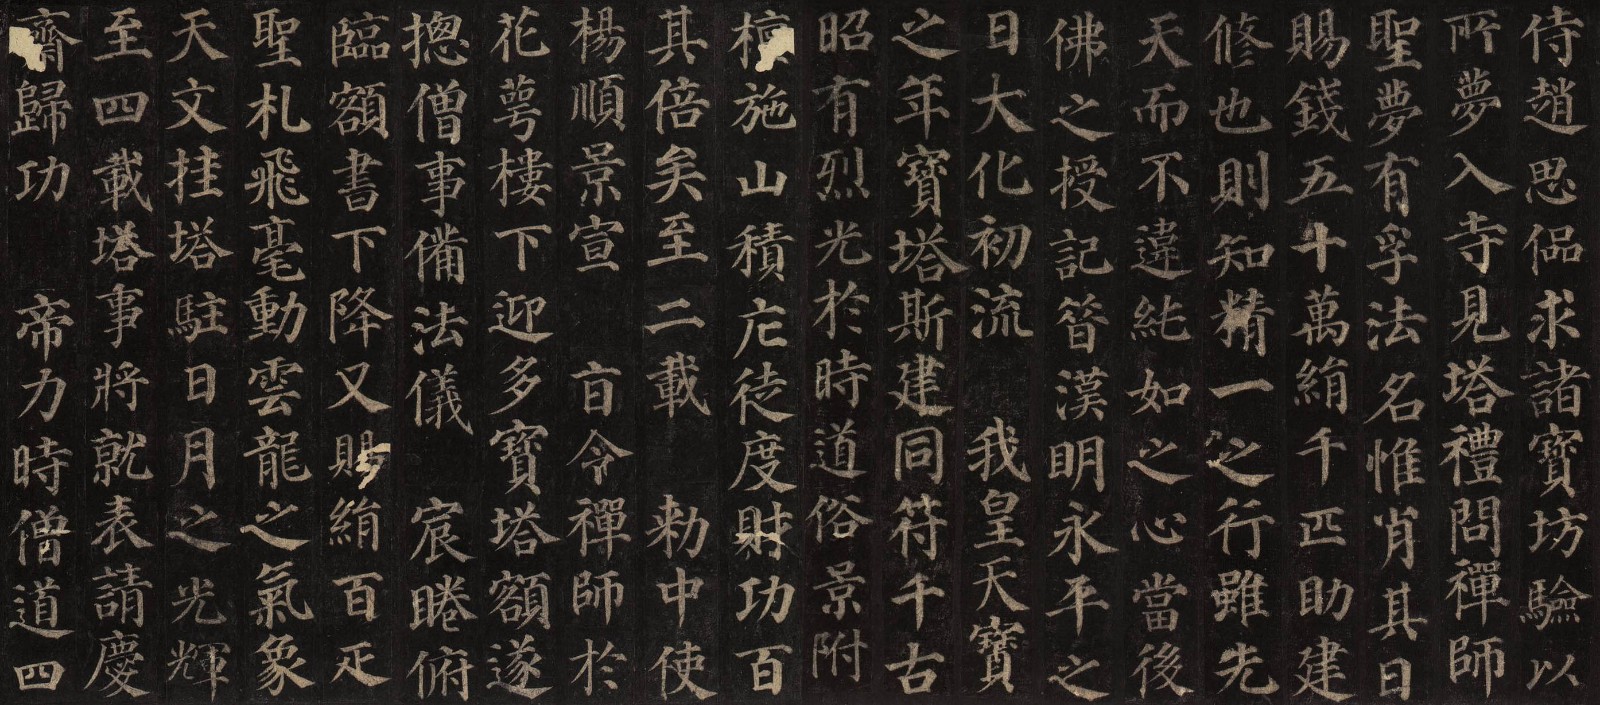 侍趙思偘求諸寶坊驗以
所夢入寺見塔禮問禪師
聖夢有孚法名惟肖其日
賜錢五十萬絹千匹助建
修也則知精一之行雖先
天而不違純如之心當後
佛之授記昔漢明永平之
日大化初流 我皇天寶
之年寶塔斯建同符千古
昭有烈光於時道俗景附
檀施山積庀徒度財功百
其倍矣至二載 勑中使
楊順景宣 㫖令禪師於
花萼樓下迎多寶塔額遂
揔僧事備法儀 宸睠俯
臨額書下降又賜絹百疋
聖札飛毫動雲龍之氣象
天文挂塔駐日月之光輝
至四載塔事將就表請慶
齋歸功 帝力時僧道四